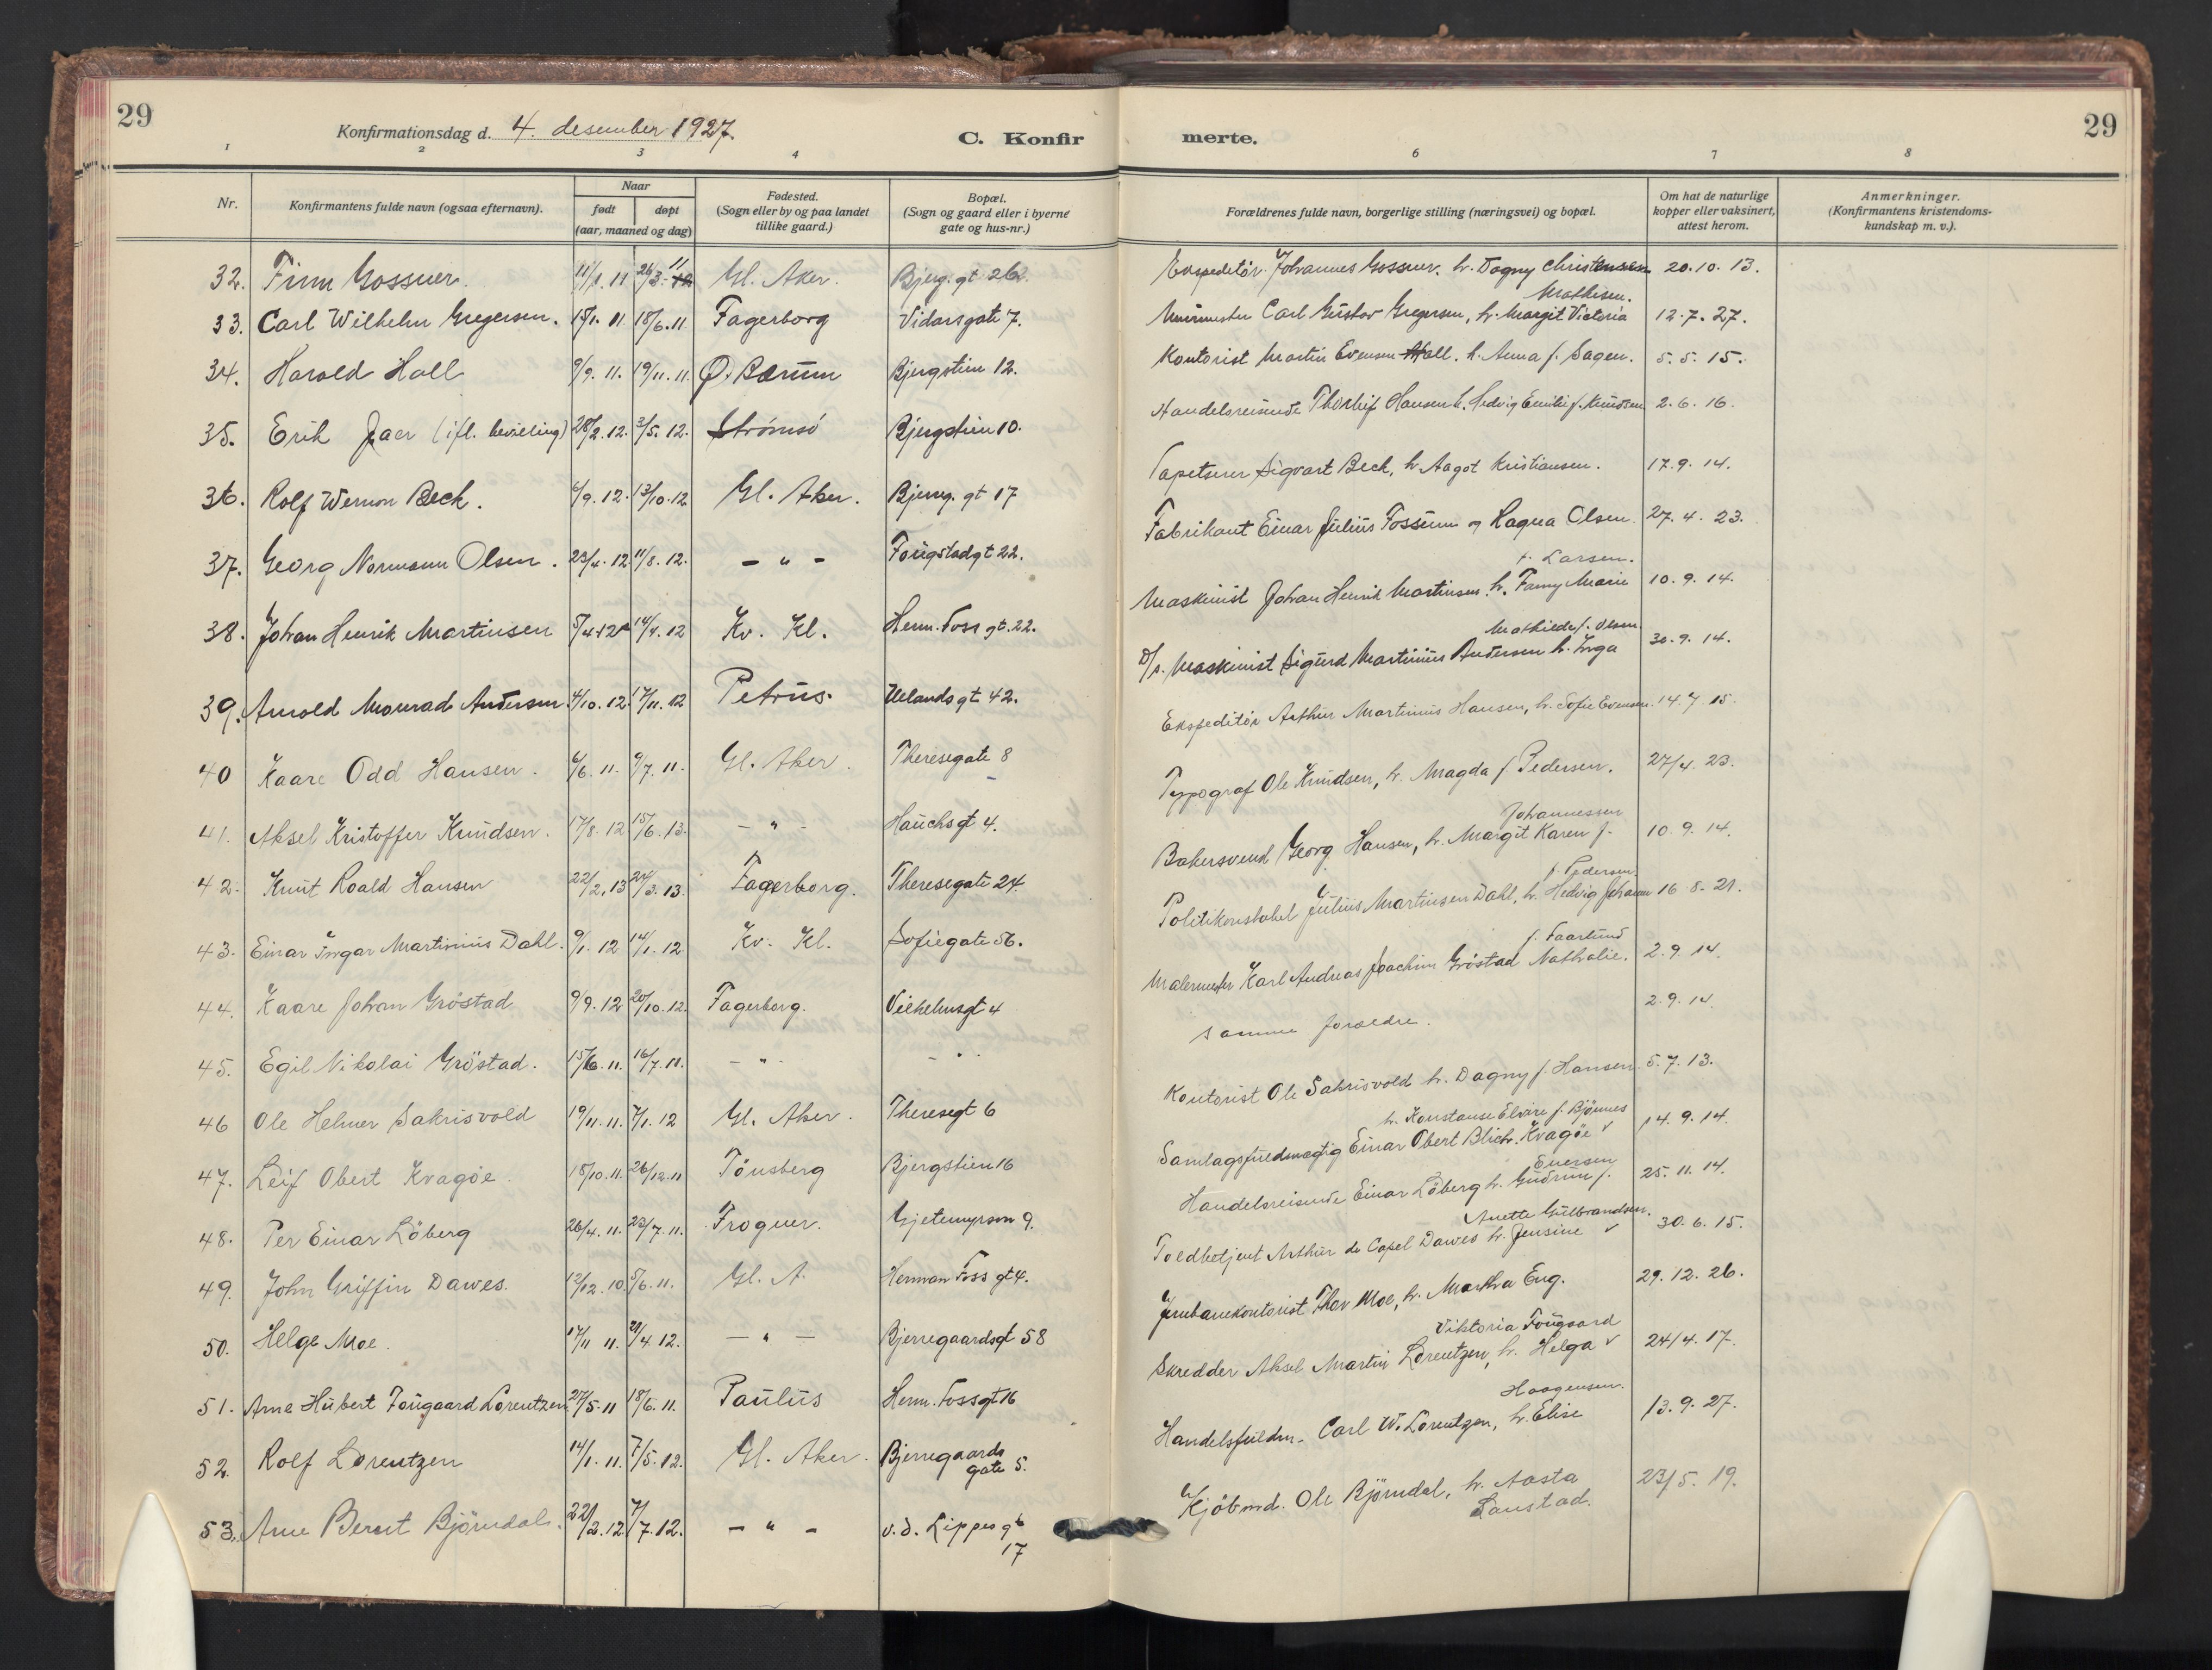 29
Konfirmationsdag d. 4. desember 1927.
C. Konfir
1 2 3 4
Nr.
Konfirmantens fulde navn (ogsaa efternavn).
Naar
født døpt
(aar, maaned og dag)
Fødested.
(Sogn eller by og paa landet
tillike gaard.)
Bopæl.
(Sogn og gaard eller i byerne
gate og hus-nr.)
32. Finn Gossner. 11/1. 11 26/3. 11 Gl. Aker. Bjerg. gt 26.
33. Carl Wilhelm Gregersen. 15/1. 11 18/6. 11. Fagerborg Vidarsgate 7.
34. Harald Hall 9/9. 11. 19/11. 11. Ø. Bærum Bjergstien 12.
35. Erik Jaer (ifl. bevilling) 28/2. 12. 3/5. 12. Strømsö Bjergstien 10.
36. Rolf Werner Beck. 6/9. 12. 13/10. 12 Gl. Aker. Bjerreg. gt 17
37. Georg Normann Olsen. 23/4. 12 11/8. 12. - " - Fougstadgt 22.
38. Johan Henrik Martinsen 5/4 12 14/4. 12 Kv. Kl. Herm. Foss gt. 22.
39. Arnold Monrad Andersen 4/10. 12. 17/11. 12 Petrus. Uelands gt 42.
40 Kaare Odd Hansen. 6/6. 11. 9/7. 11. Gl. Aker. Theresegate 8
41. Aksel Kristoffer Knudsen. 17/8. 12 15/6. 13. - " - Hauchsgt 4.
42. Knut Roald Hansen 22/2. 13 24/3. 13. Fagerborg. Theresegate 24.
43. Einar Ingar Martinius Dahl. 9/1. 12 14/1. 12 Kv. Kl. Sofiegate 56.
44. Kaare Johan Gröstad 9/9. 12 20/10. 12. Fagerborg. Vilhelmsgt 4
45. Egil Nikolai Gröstad. 15/6. 11. 16/7. 11. - " - - " -
46 Ole Helmer Sakrisvold 19/11. 11. 7/1. 12 Gl. Aker. Theresegt 6
47. Leif Obert Kvagöe. 18/10. 11. 26/12. 11 Tönsberg Bjergstien 16
48. Per Einar Löberg 26/4. 11. 23/7. 11. Frogner. Gjetemyrsvn 9.
49. John Griffin Dawes. 12/12. 10. 5/6. 11. Gl. A. Herman Foss gt 4.
50. Helge Moe. 17/11 11. 21/4. 12. - " - Bjerregaardsgt 58
51. Arne Hubert Fougaard Lorentzen 27/5. 11 18/6. 11. Paulus Herm. Foss gt 16
52. Rolf Lorentzen 14/1. 11. 7/5. 12. Gl. Aker. Bjerregaards
gate 5.
53. Arne Bernt Björndal. 22/2. 12 7/7. 12. - " - v. d. Lippes gt
17
merte.
29
6 7 8
Forældrenes fulde navn, borgerlige stilling (næringsvei) og bopæl.
Om hat de naturlige
kopper eller vaksinert,
attest herom.
Anmerkninger.
(Konfirmantens kristendoms-
kundskap m. v.).
Ekspeditör. Johannes Gossner. h. Dagny Christensen 20. 10. 13.
Mathisen.
Murmester Carl Gustav Gregersen, h. Margit Victoria 12. 7. 27.
Kontorist Martin Evensen Hall. h. Anna f. Sagen. 5. 5. 15.
Handelsreisende Thorleif Hansen h. Hedvig Emilie f. Knudsen 2. 6. 16.
Tapetserer Sigvart Beck, h. Aagot Kristiansen. 17. 9. 14.
Fabrikant Einar Julius Fossum og Ragna Olsen. 27. 4. 23.
f. Larsen.
Maskinist Johan Henrik Martinsen. h. Fanny Marie 10. 9. 14.
Mathilde f. Olsen
D/s. Maskinist Sigurd Martinius Andersen h. Inga 30. 9. 14.
Ekspeditör Arthur Martinius Hansen, h. Sofie Evensen. 14. 7 15.
Typograf Ole Knudsen, h. Magda f. Pedersen. 27/4. 23.
Johannessen
Bakersvend Georg Hansen, h. Margit Karen f. 10. 9. 14.
f. Pedersen
Politikonstabel Julius Martinsen Dahl, h. Hedvig Johanne 16. 8. 21.
f. Faarlund
Malermester Karl Andreas Joachim Gröstad Nathalie. 2. 9. 14.
samme forældre. 2. 9. 14.
Kontorist Ole Sakrisvold h. Dagny f. Hansen. 5. 7. 13.
h. Konstanse Elvire f. Björnnes
Samlagsfuldmægtig Einar Obert Blich. Kvagöe 14. 9. 14.
Enersen
Handelsreisende Einar Löberg h. Gudrun f. 25. 11. 14.
Anette Gulbrandsen.
Toldbetjent Arthur de Capel Dawes h. Jensine 30. 6. 15.
Jernbanekontorist Thor Moe, h. Martha Eng. 29. 12. 26.
Viktoria Fougaard
Skredder Aksel Martin Lorentzen, h. Helga 24/4. 17.
Haagensen.
Handelsfuldm. Carl W. Lorentzen, h. Elise 13. 9. 27.
Kjöbmd. Ole Björndal, h. Aasta 23/5. 19.
Lanstad.